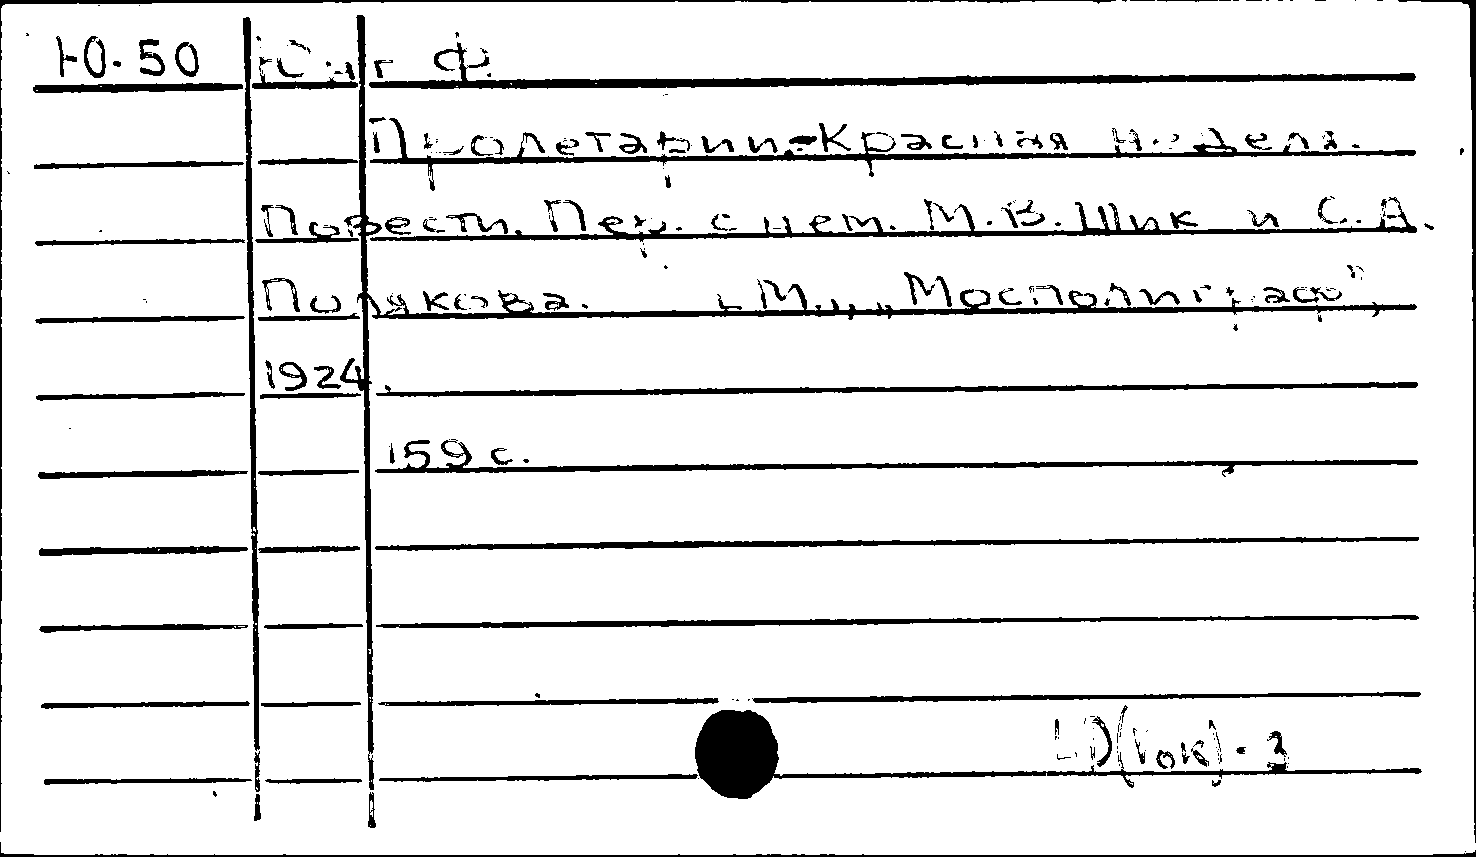 Ю-50 Юнг Ф.
Пролетарии.-Красная неделя.
Повести. Пер. с нем. М.В.Шик и С.А.
Полякова. - М., „Мосполиграф",
1924.
159 с.